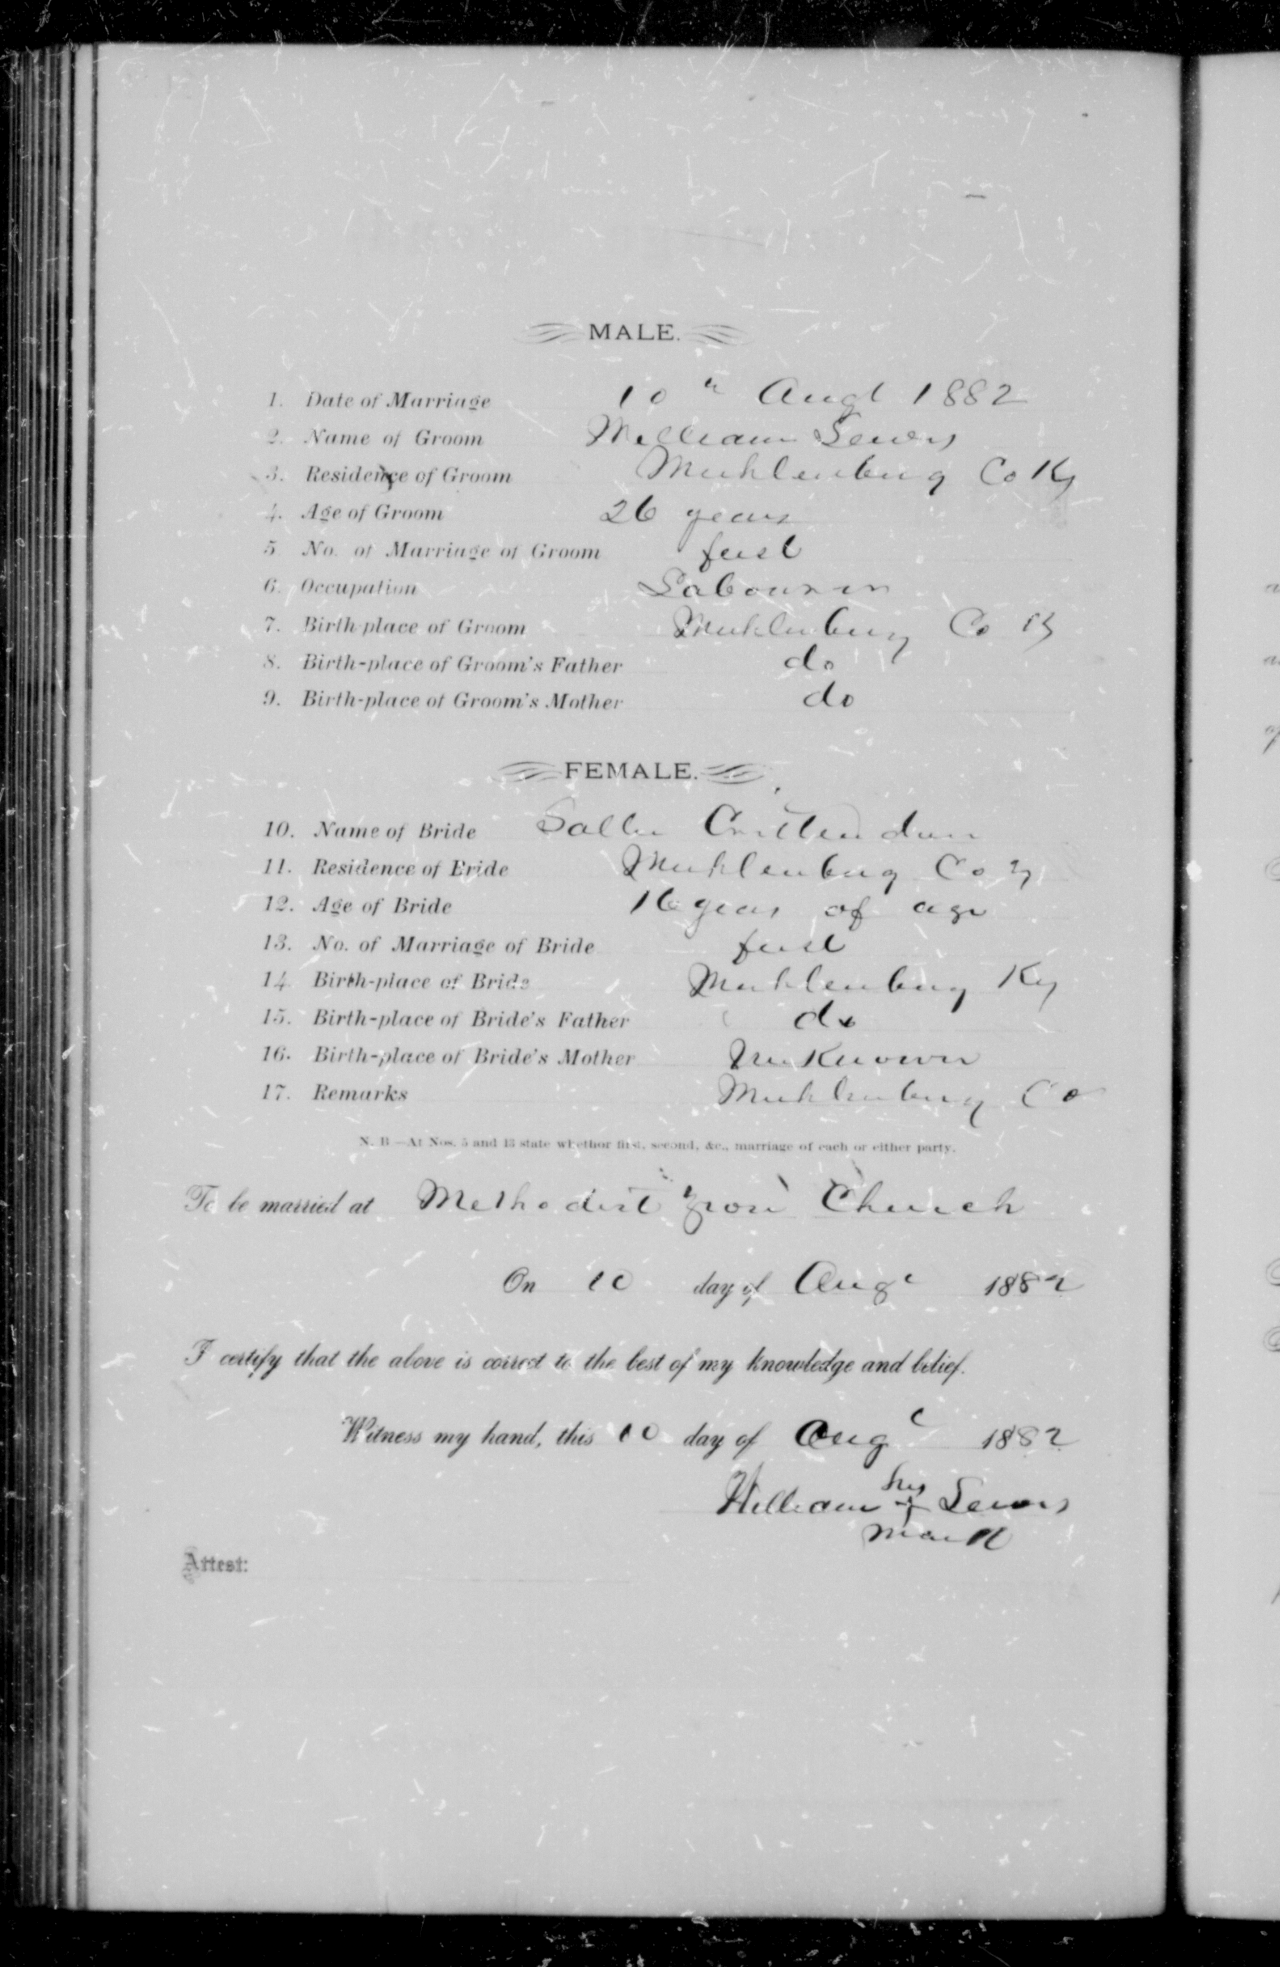 MALE.
1. Date of Marriage 10th Augt 1882
2. Name of Groom William Lewis
3. Residence of Groom Muhlenburg Co Ky
4. Age of Groom 26 years
5 No. of Marriage of Groom first
6. Occupation
7. Birth-place of Groom Muhlenburg Co Ky
8. Birth-place of Groom's Father do
9. Birth-place of Groom's Mother do
FEMALE.
10. Name of Bride Sallie Crittenden
11. Residence of Bride Muhlenburg Co Ky
12. Age of Bride 16 years of age
13. No. of Marriage of Bride first
14 Birth-place of Bride Muhlenburg Ky
15. Birth-place of Bride's Father do
16. Birth-place of Bride's Mother Unknown
17. Remarks Muhlenburg Co
N. B—At Nos. 5 and 13 state whether first, second, &c., marriage of each or either party.
To be married at Methodist "Zion" Church
On 10 day of Augt 1882
I certify that the above is correct to the best of my knowledge and belief.
Witness my hand, this 10 day of Augt 1882
his
William + Lewis
mark
Attest: